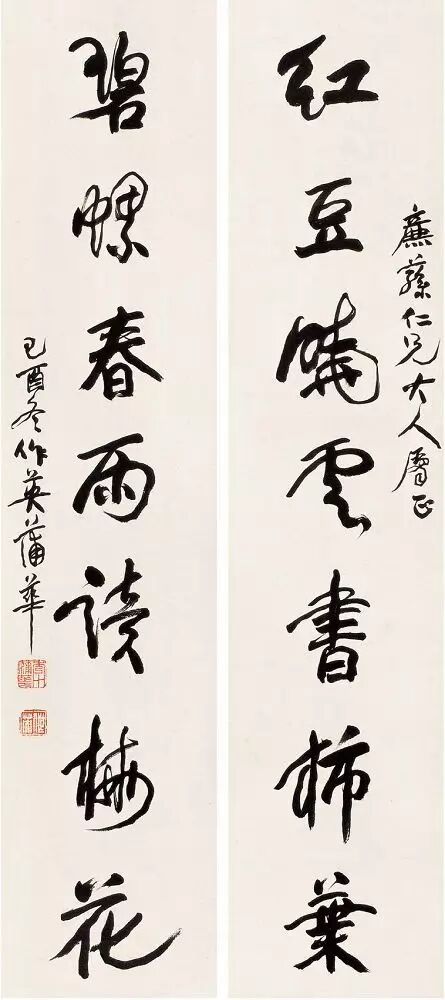 廉蓀仁兄大人屬正
紅豆曉雲書柿葉
碧螺春雨讀梅花
己酉冬作英蒲華